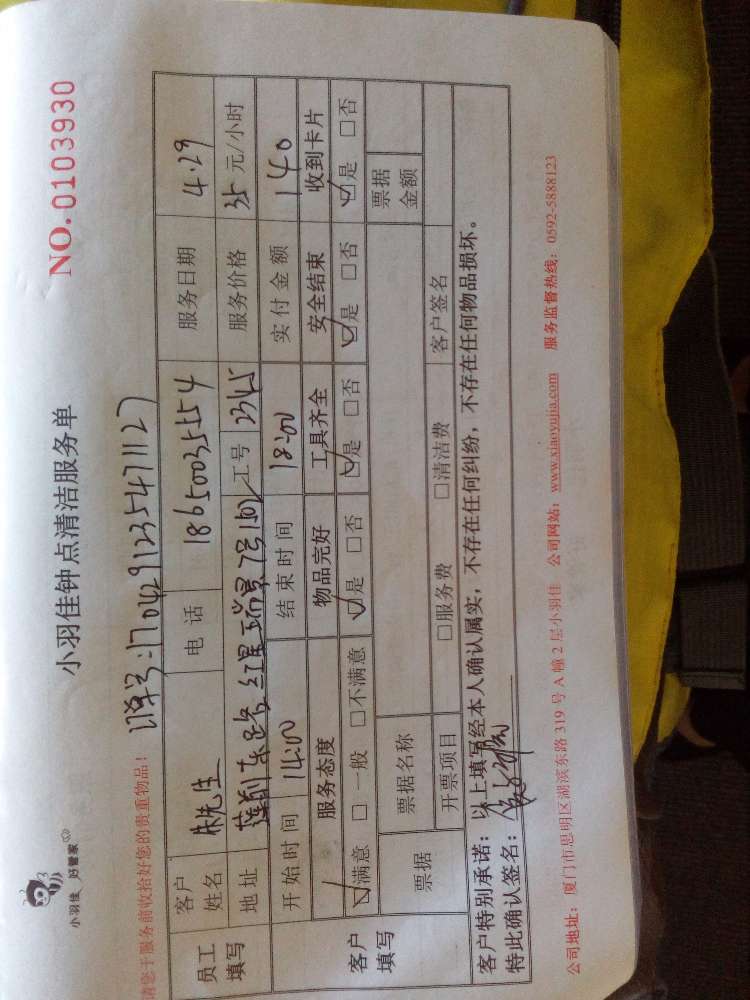 小羽佳 好管家
小羽佳钟点清洁服务单
NO.0103930
请您于服务前收拾好您的贵重物品!
订单号:1704291235471127
员工填写
客户姓名 朱先生 电话 18650035554 服务日期 4.29
地址 莲前东路红星瑞景7号1501 工号 2345 服务价格 35元/小时
开始时间 14:00 结束时间 18:00 实付金额 140
客户填写
服务态度 物品完好 工具齐全 安全结束 收到卡片
☑满意 □一般 □不满意 ☑是 □否 ☑是 □否 ☑是 □否 ☑是 □否
票据 票据名称 票据金额
开票项目 □服务费 □清洁费 客户签名
客户特别承诺:以上填写经本人确认属实,不存在任何纠纷,不存在任何物品损坏。
特此确认签名:
公司地址:厦门市思明区湖滨东路319号A幢2层小羽佳 公司网站:www.xiaoyujia.com 服务监督热线:0592-5888123